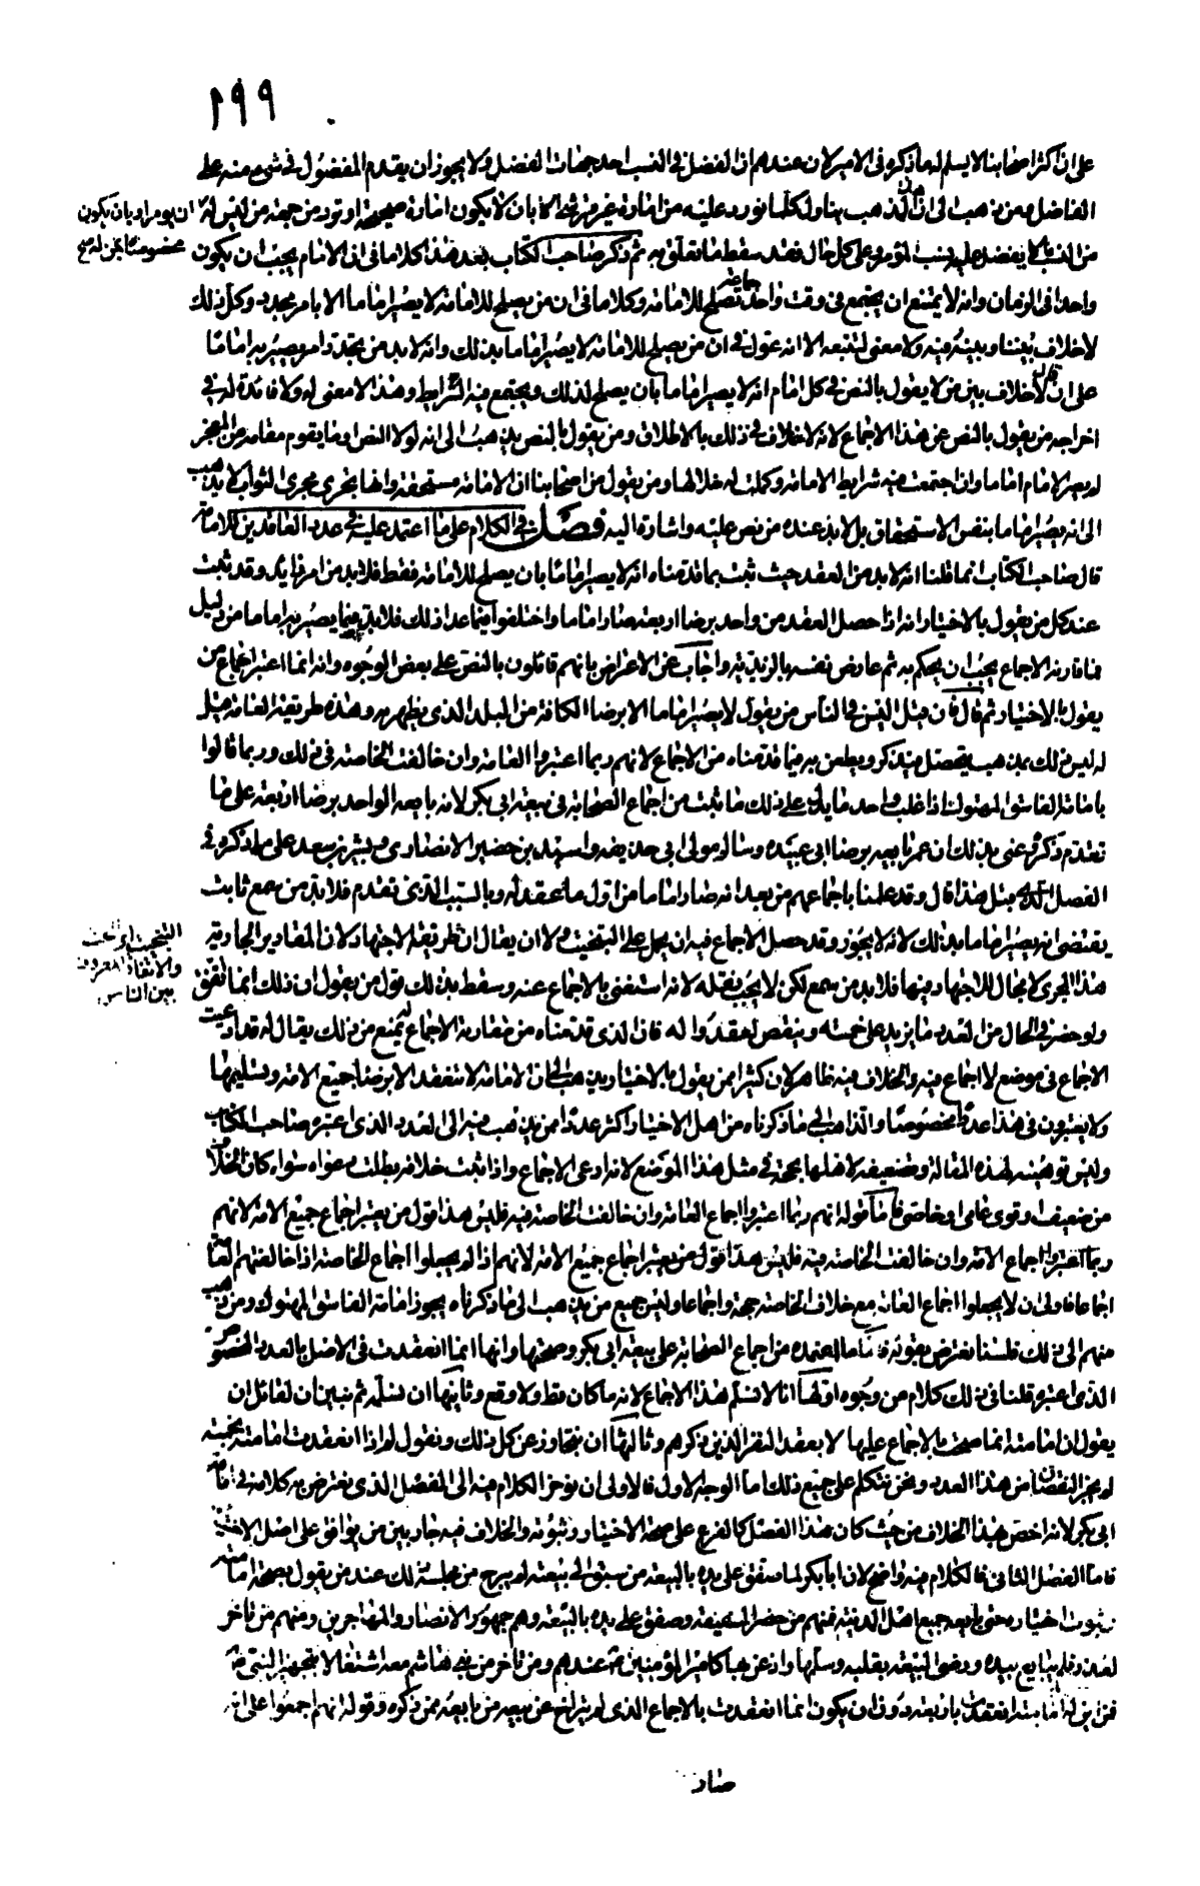 ١٩٩
على ان اكثر اصحابنا لا يسلم له ما ذكره في الامير لان عندهم ان الفضل في النسب احد جهات الفضل ولا يجوز ان يقدم المفضول في شيء منه على
الفاضل ومن ذهب الى ان هذا المذهب يتأول كلما نورد عليه من امارة غير قرشي الا بان لا يكون امارة صحيحة او تورد من جهة من ليس له ان يومر او بان يكون
من النسب ما لا يفضل عليه نسب المؤمر وعلى كل حال فقد سقط ما تعلق به ثم ذكر صاحب الكتاب بعد هذا كلاما في ان الامام يجب ان يكون
مخصوصا بمن له مع
واحدا في الزمان وانه لا يمتنع ان يجتمع في وقت واحد جماعة تصلح للامامة وكلاما في ان من يصلح للامامة لا يصير اماما الا بامر مجدد وكل ذلك
لا خلاف بيننا وبينه فيه ولا معنى لتتبعه الا انه عول في ان من يصلح للامامة لا يصير اماما بذلك وانه لا بد من تجدد امر يصير به اماما
على ان قال لا خلاف بين من لا يقول بالنص في كل امام انه لا يصير اماما بان يصلح لذلك ويجتمع فيه الشرايط وهذا لا معنى له ولا فائدة له في
اخراجه من يقول بالنص عن هذا الاجماع لانه لا خلاف في ذلك بالاطلاق ومن يقول بالنص يذهب الى انه لولا النص او ما يقوم مقامه من المعجز
لم يصر الامام اماما وان اجتمعت فيه شرايط الامامة وكملت له خلالها ومن يقول من اصحابنا ان الامامة مستحقة وانها تجري مجرى الثواب لا يذهب
الى انه يصير اماما بنفس الاستحقاق بل لا بد عنده من نص عليه واشارة اليه فصل في الكلام على ما اعتمد عليه في عدد العاقدين للامامة
قال صاحب الكتاب انما قلنا انه لا بد من العقد حيث ثبت بما قدمناه انه لا يصير اماما بان يصلح للامامة فقط فلا بد من امر زايد وقد ثبت
عند كل من يقول بالاختيار انه اذا حصل العقد من واحد برضا اربعة صار اماما واختلفوا فيما عدا ذلك فلا بد فيما يصير به اماما من دليل
فما قارنه الاجماع يجب ان يحكم به ثم عارض نفسه بالزيدية واجاب عن الاعتراض بانهم قائلون بالنص على بعض الوجوه وانه انما اعتبر اجماع من
يقول بالاختيار ثم قال فان قيل اليس في الناس من يقول لا يصير اماما الا برضا الكافة من البلد الذي يظهر به وهذه طريقة العامة قيل
له ليس ذلك بمذهب يتحصل فيذكر ويطعن به فيما قدمناه من الاجماع لانهم ربما اعتبروا العامة وان خالفت الخاصة في ذلك وربما قالوا
بامامة الفاسق المهتوك اذا غلب واحد ما يدل على ذلك ما ثبت من اجماع الصحابة في بيعة ابي بكر لانه بايعه الواحد برضا اربعة على ما
تقدم ذكره عنى بذلك ان عمر بايعه برضا ابي عبيدة وسالم مولى ابي حذيفة واسيد بن حضير الانصاري وبشير بن سعد على ما ذكره في
الفصل الذي قبل هذا قال وقد علمنا باجماعهم من بعد انه صار اماما من اول ما عقد له وبالسبب الذي تقدم فلا بد من سمع ثابت
يقتضي انه يصير اماما بذلك لانه لا يجوز وقد حصل الاجماع فيه ان يحمل على التبخيت ولا ان يقال ان طريقه الاجتهاد لان المقادير الجارية
التبخيت
والاتفاق المعروف
بين الناس
هذا المجرى لا مجال للاجتهاد فيها فلا بد من سمع لكن لا يجب نقله لانه استغنى بالاجماع عنه وسقط بذلك قول من يقول ان ذلك انما اتفق
ولو حضر في الحال من العدد ما يزيد على خمسة وينقص لعقدوا له فان الذي قدمناه من مقارنة الاجماع له يمنع من ذلك يقال له قد ادعيت
الاجماع في موضع لا اجماع فيه والخلاف فيه ظاهر لان كثيرا ممن يقول بالاختيار يذهب الى ان الامامة لا تنعقد الا برضا جميع الامة وتسليمها
ولا يعتبرون في هذا عددا مخصوصا والذاهب الى ما ذكرناه من اهل الاختيار اكثر عددا ممن يذهب فيه الى العدد الذي اعتبره صاحب الكتاب
وليس توهينه لهذه المقالة وتضعيفه لاهلها بحجة في مثل هذا الموضع لانه ادعى الاجماع واذا ثبت خلافه بطلت دعواه سواء كان الخلاف
من ضعيف او قوي عامي او خاصي فاما قوله انهم ربما اعتبروا اجماع العامة وان خالفت الخاصة فيه فليس هذا قول من يعتبر اجماع جميع الامة لانهم
ربما اعتبروا اجماع الامة وان خالفت الخاصة فيه فليس هذا قول من يعتبر اجماع جميع الامة لانهم اذا لم يجعلوا اجماع الخاصة اذا خالفتهم العامة
اجماعا فاولى ان لا يجعلوا اجماع العامة مع خلاف الخاصة حجة واجماعا وليس جميع من يذهب الى ما ذكرناه يجوز امامة الفاسق المهتوك ومن ذهب
منهم الى ذلك فلسنا نعترض بقوله فاما ما اعتمده من اجماع الصحابة على بيعة ابي بكر وصحتها وانها انما انعقدت في الاصل بالعدد المخصوص
الذي اعتبره قلنا في ذلك كلام من وجوه اولها انا لا نسلم هذا الاجماع لانه ما كان قط ولا وقع وثانيها ان نسلمه ثم نبين ان لقائل ان
يقول ان امامته انما صحت بالاجماع عليها لا بعقد النفر الذين ذكرهم وثالثها ان نتجاوز عن كل ذلك ونقول له اذا انعقدت امامته بخمسة
لم يجز النقصان من هذا العدد ونحن نتكلم على جميع ذلك اما الوجه الاول فالاولى ان نؤخر الكلام فيه الى الفصل الذي نعترض به كلامه في امامة
ابي بكر لانه اخص بهذا الخلاف من حيث كان هذا الفصل كالفرع على صحة الاختيار وثبوته والخلاف فيه جار بين من يوافق على اصل الاختيار
فاما الفصل الثاني فالكلام فيه واضح لان ابا بكر لما صفق على يده بالبيعة من سبق الى بيعته لم يبرح من مجلسه ذلك عند من يقول بصحة امامته
وثبوت اختياره حتى بايعه جميع اهل المدينة فمنهم من حضر السقيفة وصفق على يده بالبيعة وهم جمهور الانصار والمهاجرين ومنهم من تاخر
لعذر فلم يبايع بيده ورضي البيعة بقلبه وسلمها واذعن بها كامير المؤمنين ع عندهم ومن تاخر من بني هاشم معه اشتغالا بتجهيز النبي ص
فمن اين له ان امامته انعقدت باربعة دون ان يكون انما انعقدت بالاجماع الذي لم يتراخ عن بيعة من بايعه ممن ذكره وقوله انهم اجمعوا على انه
صار